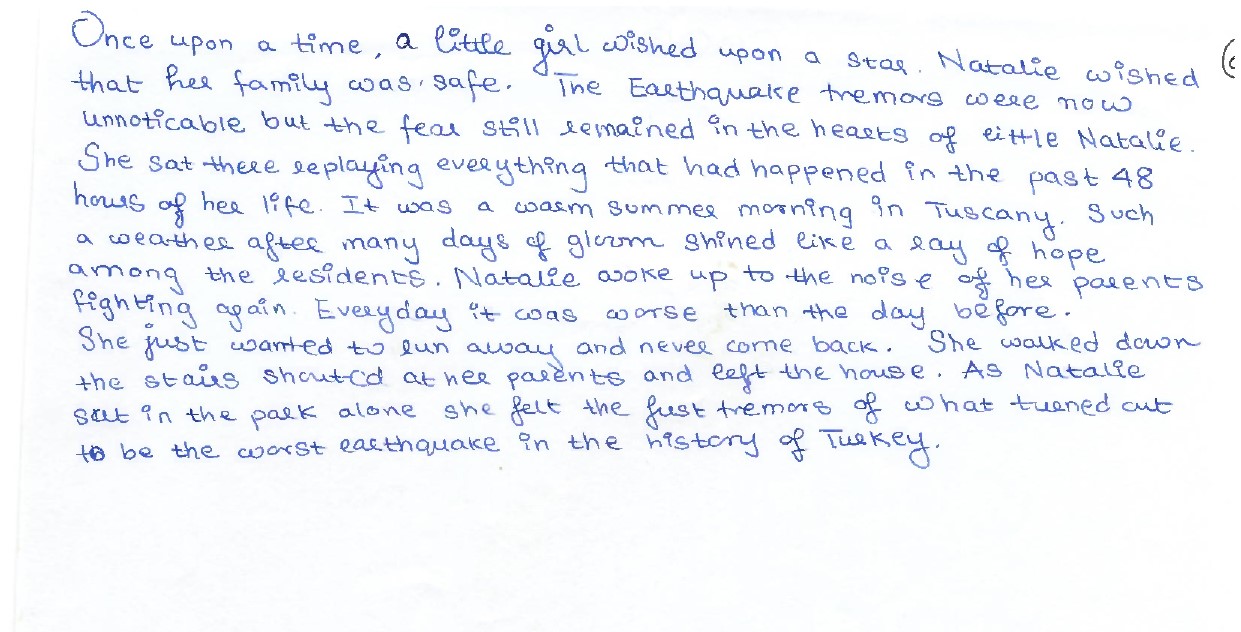 Once upon a time, a little girl wished upon a star. Natalie wished
that her family was safe. The Earthquake tremors were now
unnoticable but the fear still remained in the hearts of little Natalie.
She sat there replaying everything that had happened in the past 48
hours of her life. It was a warm summer morning in Tuscany. Such
a weather after many days of gloom shined like a ray of hope
among the residents. Natalie woke up to the noise of her parents
fighting again. Everyday it was worse than the day before.
She just wanted to run away and never come back. She walked down
the stairs shouted at her parents and left the house. As Natalie
sat in the park alone she felt the first tremors of what turned out
to be the worst earthquake in the history of Turkey.